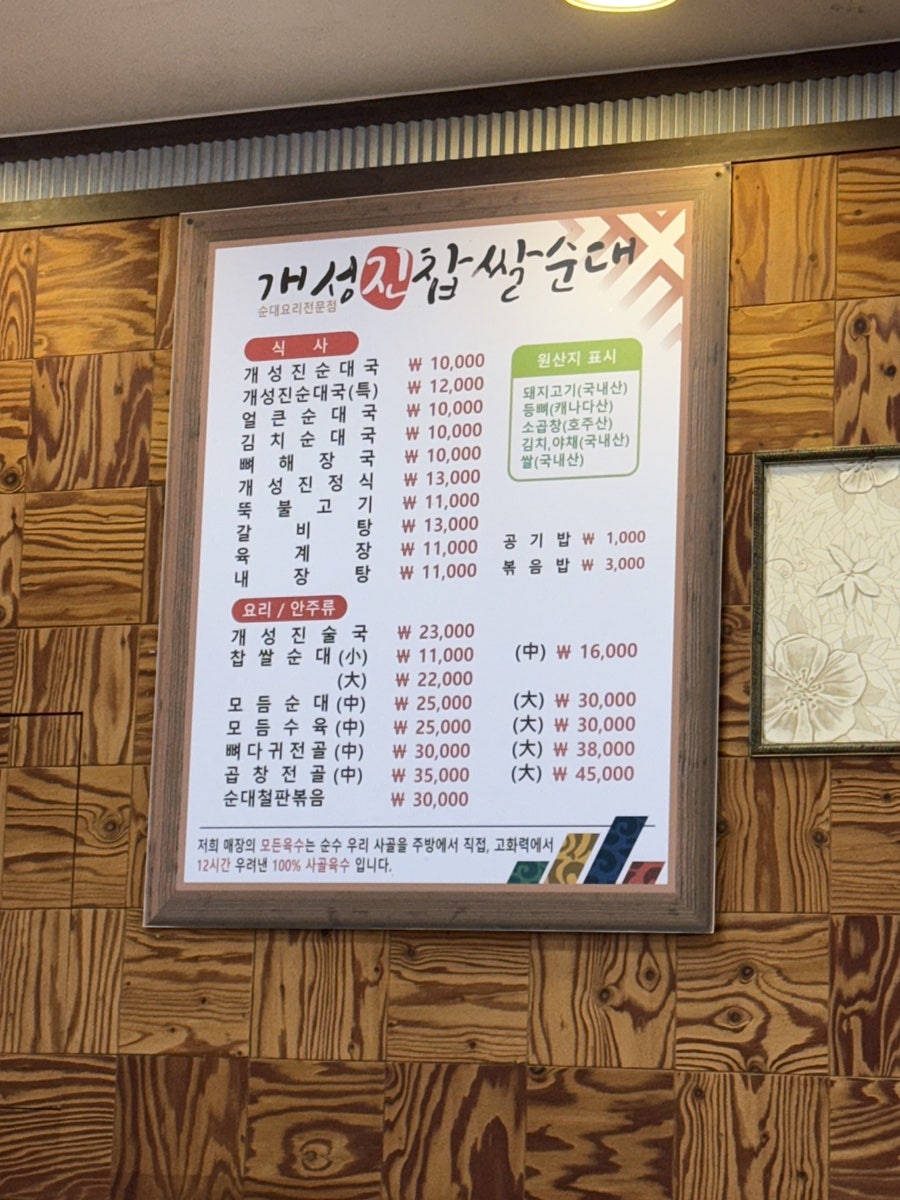 개성진찹쌀순대
순대요리전문점
식 사
개성진순대국 ₩ 10,000
개성진순대국(특) ₩ 12,000
얼큰순대국 ₩ 10,000
김치순대국 ₩ 10,000
뼈해장국 ₩ 10,000
개성진정식 ₩ 13,000
뚝불고기 ₩ 11,000
갈비탕 ₩ 13,000
육계장 ₩ 11,000
내장탕 ₩ 11,000
원산지 표시
돼지고기(국내산)
등뼈(캐나다산)
소곱창(호주산)
김치,야채(국내산)
쌀(국내산)
공기밥 ₩ 1,000
볶음밥 ₩ 3,000
요리 / 안주류
개성진술국 ₩ 23,000
찹쌀순대(小) ₩ 11,000 (中) ₩ 16,000
(大) ₩ 22,000
모듬순대(中) ₩ 25,000 (大) ₩ 30,000
모듬수육(中) ₩ 25,000 (大) ₩ 30,000
뼈다귀전골(中) ₩ 30,000 (大) ₩ 38,000
곱창전골(中) ₩ 35,000 (大) ₩ 45,000
순대철판볶음 ₩ 30,000
저희 매장의 모든육수는 순수 우리 사골을 주방에서 직접, 고화력에서
12시간 우려낸 100% 사골육수 입니다.